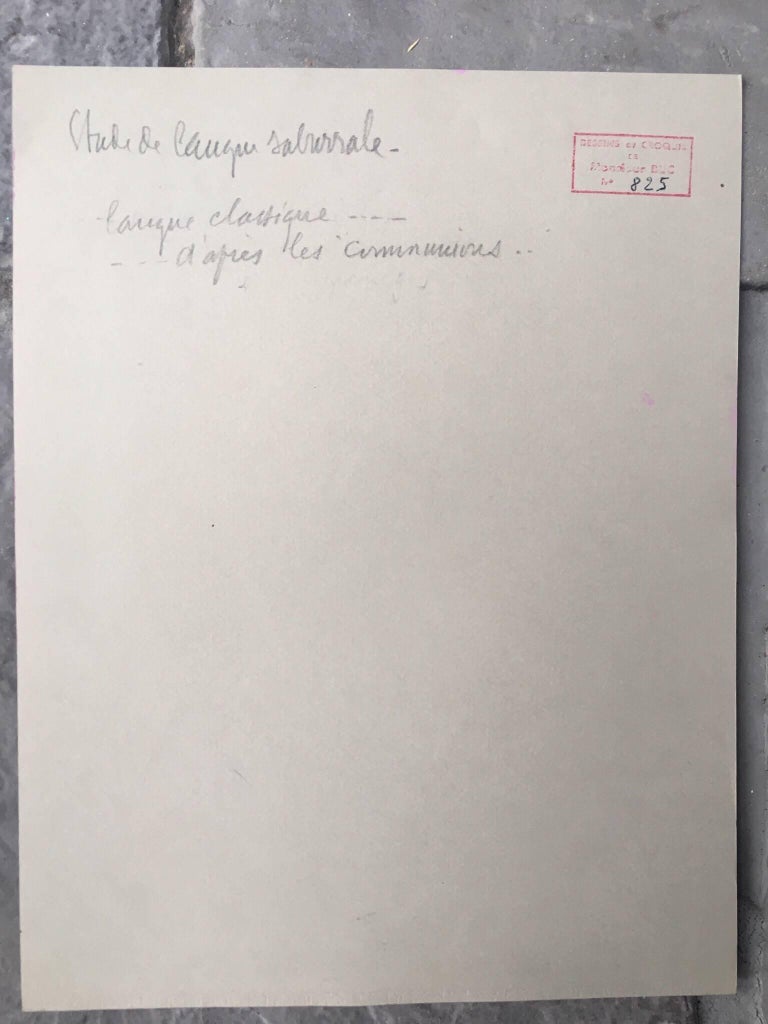 Etude de langue saburrale -
langue classique ----
- - - d'après les communions ..
DESSINS et CROQUIS
DE
Monsieur DUC
N° 825